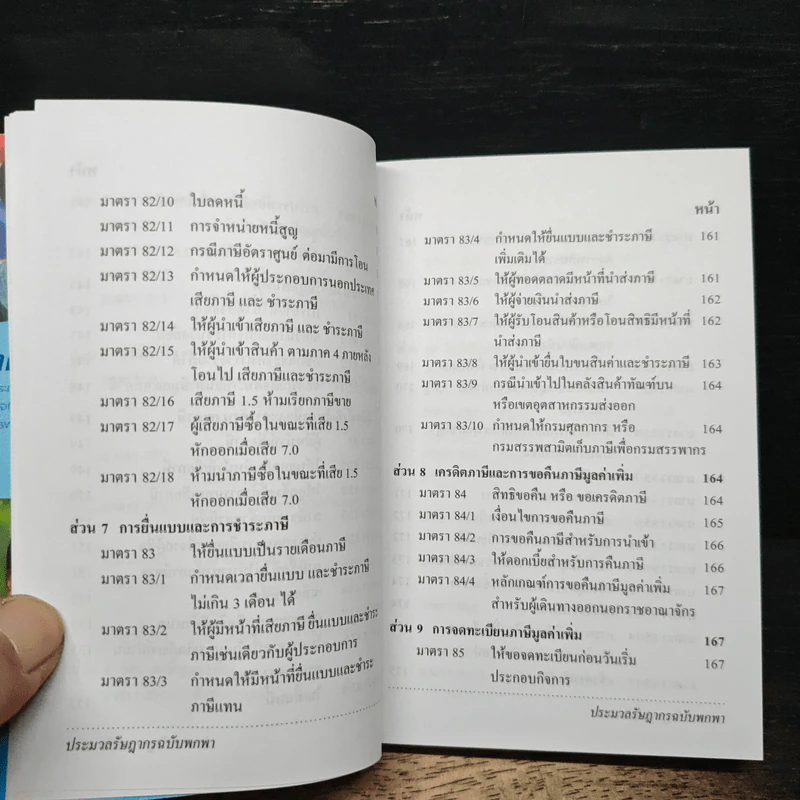 มาตรา 82/10 ใบลดหนี้
มาตรา 82/11 การจำหน่ายหนี้สูญ
มาตรา 82/12 กรณีภาษีอัตราศูนย์ ต่อมามีการโอน
มาตรา 82/13 กำหนดให้ผู้ประกอบการนอกประเทศ
เสียภาษี และ ชำระภาษี
มาตรา 82/14 ให้ผู้นำเข้าเสียภาษี และ ชำระภาษี
มาตรา 82/15 ให้ผู้นำเข้าสินค้า ตามภาค 4 ภายหลัง
โอนไป เสียภาษีและชำระภาษี
มาตรา 82/16 เสียภาษี 1.5 ห้ามเรียกภาษีขาย
มาตรา 82/17 ผู้เสียภาษีซื้อในขณะที่เสีย 1.5
หักออกเมื่อเสีย 7.0
มาตรา 82/18 ห้ามนำภาษีซื้อในขณะที่เสีย 1.5
หักออกเมื่อเสีย 7.0
ส่วน 7 การยื่นแบบและการชำระภาษี
มาตรา 83 ให้ยื่นแบบเป็นรายเดือนภาษี
มาตรา 83/1 กำหนดเวลายื่นแบบ และชำระภาษี
ไม่เกิน 3 เดือน ได้
มาตรา 83/2 ให้ผู้มีหน้าที่เสียภาษี ยื่นแบบและชำระ
ภาษีเช่นเดียวกับผู้ประกอบการ
มาตรา 83/3 กำหนดให้มีหน้าที่ยื่นแบบและชำระ
ภาษีแทน
ประมวลรัษฎากรฉบับพกพา
หน้า
มาตรา 83/4 กำหนดให้ยื่นแบบและชำระภาษี 161
เพิ่มเติมได้
มาตรา 83/5 ให้ผู้ทอดตลาดมีหน้าที่นำส่งภาษี 161
มาตรา 83/6 ให้ผู้จ่ายเงินนำส่งภาษี 162
มาตรา 83/7 ให้ผู้รับโอนสินค้าหรือโอนสิทธิมีหน้าที่ 162
นำส่งภาษี
มาตรา 83/8 ให้ผู้นำเข้ายื่นใบขนสินค้าและชำระภาษี 163
มาตรา 83/9 กรณีนำเข้าไปในคลังสินค้าทัณฑ์บน 164
หรือเขตอุตสาหกรรมส่งออก
มาตรา 83/10 กำหนดให้กรมศุลกากร หรือ 164
กรมสรรพสามิตเก็บภาษีเพื่อกรมสรรพากร
ส่วน 8 เครดิตภาษีและการขอคืนภาษีมูลค่าเพิ่ม 164
มาตรา 84 สิทธิขอคืน หรือ ขอเครดิตภาษี 164
มาตรา 84/1 เงื่อนไขการขอคืนภาษี 165
มาตรา 84/2 การขอคืนภาษีสำหรับการนำเข้า 166
มาตรา 84/3 ให้ดอกเบี้ยสำหรับการคืนภาษี 166
มาตรา 84/4 หลักเกณฑ์การขอคืนภาษีมูลค่าเพิ่ม 167
สำหรับผู้เดินทางออกนอกราชอาณาจักร
ส่วน 9 การจดทะเบียนภาษีมูลค่าเพิ่ม 167
มาตรา 85 ให้ขอจดทะเบียนก่อนวันเริ่ม 167
ประกอบกิจการ
ประมวลรัษฎากรฉบับพกพา